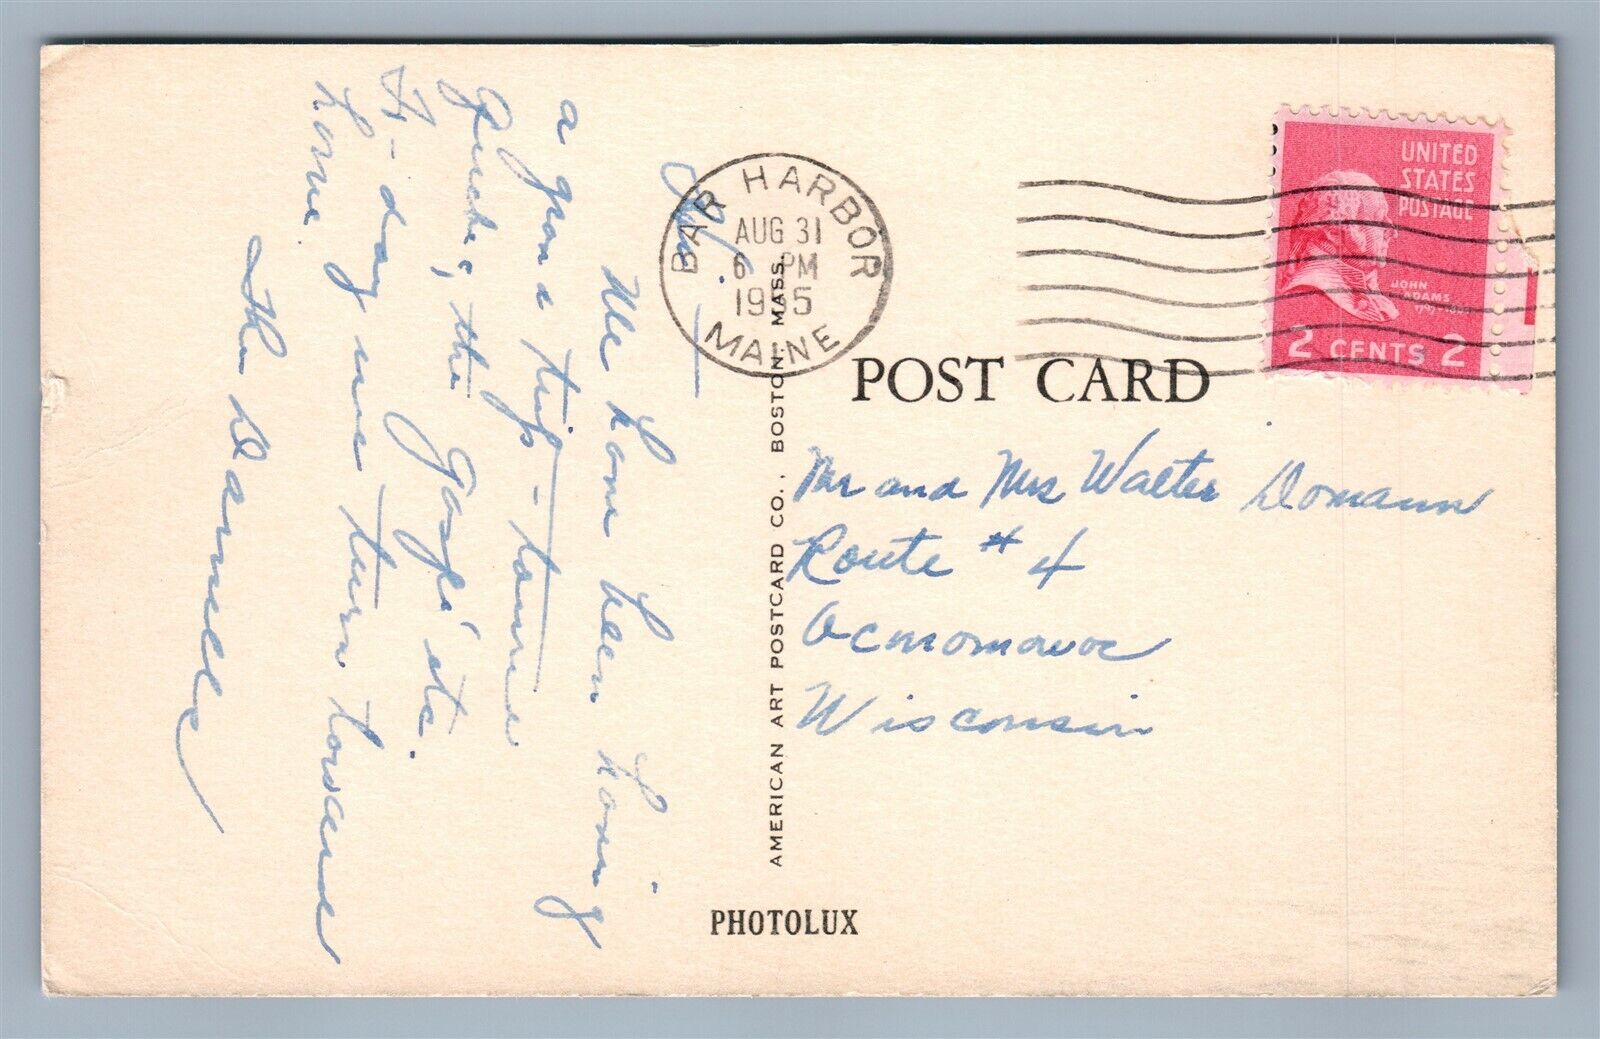 We have been having
a grand trip - tourne
Quebec, the Gaspé etc.
To-day we turn toward
home.
The Damuels
BAR HARBOR
AUG 31
6 PM
1955
MAINE
UNITED
STATES
POSTAGE
JOHN
ADAMS
2 CENTS 2
POST CARD
Mr and Mrs Walter Domann
Route #4
Oconomowoc
Wisconsin
AMERICAN ART POSTCARD CO., BOSTON, MASS.
PHOTOLUX